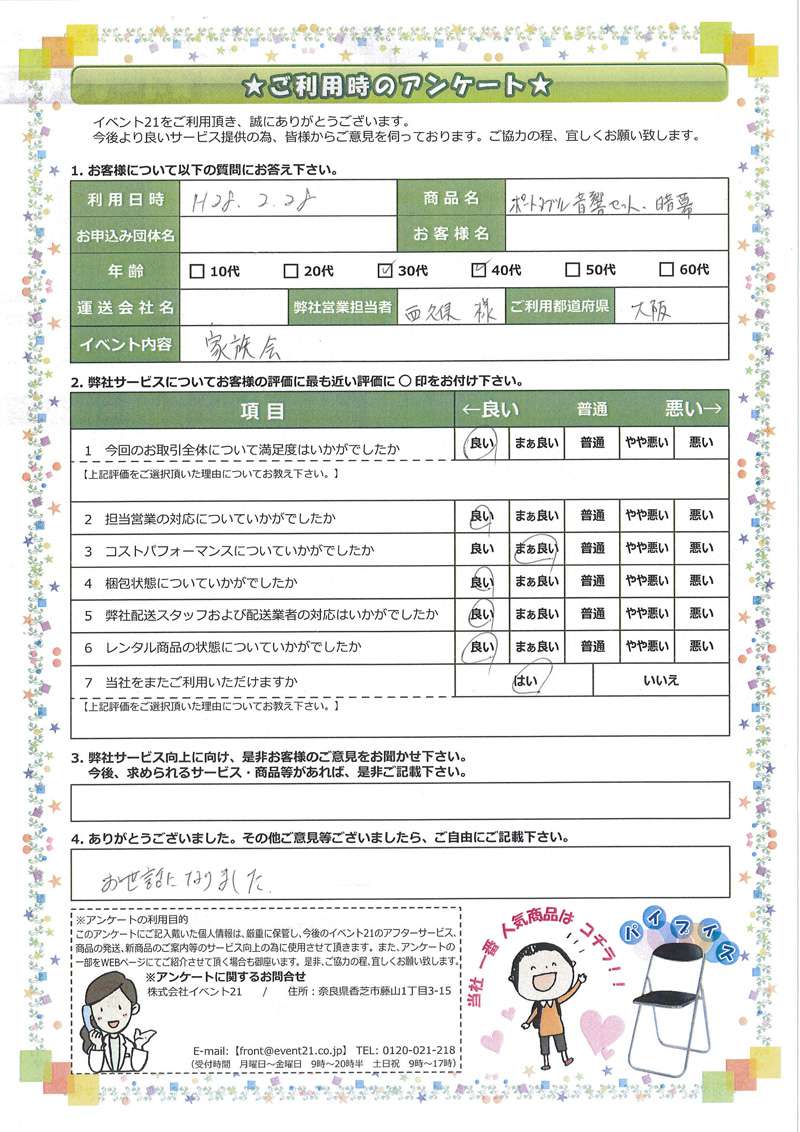 ★ご利用時のアンケート★
イベント21をご利用頂き、誠にありがとうございます。
今後より良いサービス提供の為、皆様からご意見を伺っております。ご協力の程、宜しくお願い致します。
1. お客様について以下の質問にお答え下さい。
利用日時 H28. 2. 28 商品名 ポータブル音響セット、暗幕
お申込み団体名 お客様名
年齢 10代 20代 30代 40代 50代 60代
運送会社名 弊社営業担当者 西久保 様 ご利用都道府県 大阪
イベント内容 家族会
2. 弊社サービスについてお客様の評価に最も近い評価に ○ 印をお付け下さい。
項目 ←良い 普通 悪い→
1 今回のお取引全体について満足度はいかがでしたか 良い まぁ良い 普通 やや悪い 悪い
【上記評価をご選択頂いた理由についてお教え下さい。】
2 担当営業の対応についていかがでしたか 良い まぁ良い 普通 やや悪い 悪い
3 コストパフォーマンスについていかがでしたか 良い まぁ良い 普通 やや悪い 悪い
4 梱包状態についていかがでしたか 良い まぁ良い 普通 やや悪い 悪い
5 弊社配送スタッフおよび配送業者の対応はいかがでしたか 良い まぁ良い 普通 やや悪い 悪い
6 レンタル商品の状態についていかがでしたか 良い まぁ良い 普通 やや悪い 悪い
7 当社をまたご利用いただけますか はい いいえ
【上記評価をご選択頂いた理由についてお教え下さい。】
3. 弊社サービス向上に向け、是非お客様のご意見をお聞かせ下さい。
今後、求められるサービス・商品等があれば、是非ご記載下さい。
4. ありがとうございました。その他ご意見等ございましたら、ご自由にご記載下さい。
お世話になりました
※アンケートの利用目的
このアンケートにご記入戴いた個人情報は、厳重に保管し、今後のイベント21のアフターサービス、
商品の発送、新商品のご案内等のサービス向上の為に使用させて頂きます。また、アンケートの
一部をWEBページにてご紹介させて頂く場合も御座います。是非、ご協力の程、宜しくお願い致します。
※アンケートに関するお問合せ
株式会社イベント21 / 住所：奈良県香芝市藤山1丁目3-15
E-mail:【front@event21.co.jp】 TEL: 0120-021-218
（受付時間 月曜日〜金曜日 9時〜20時半 土日祝 9時〜17時）
当社一番人気商品はコチラ！！
パイプイス